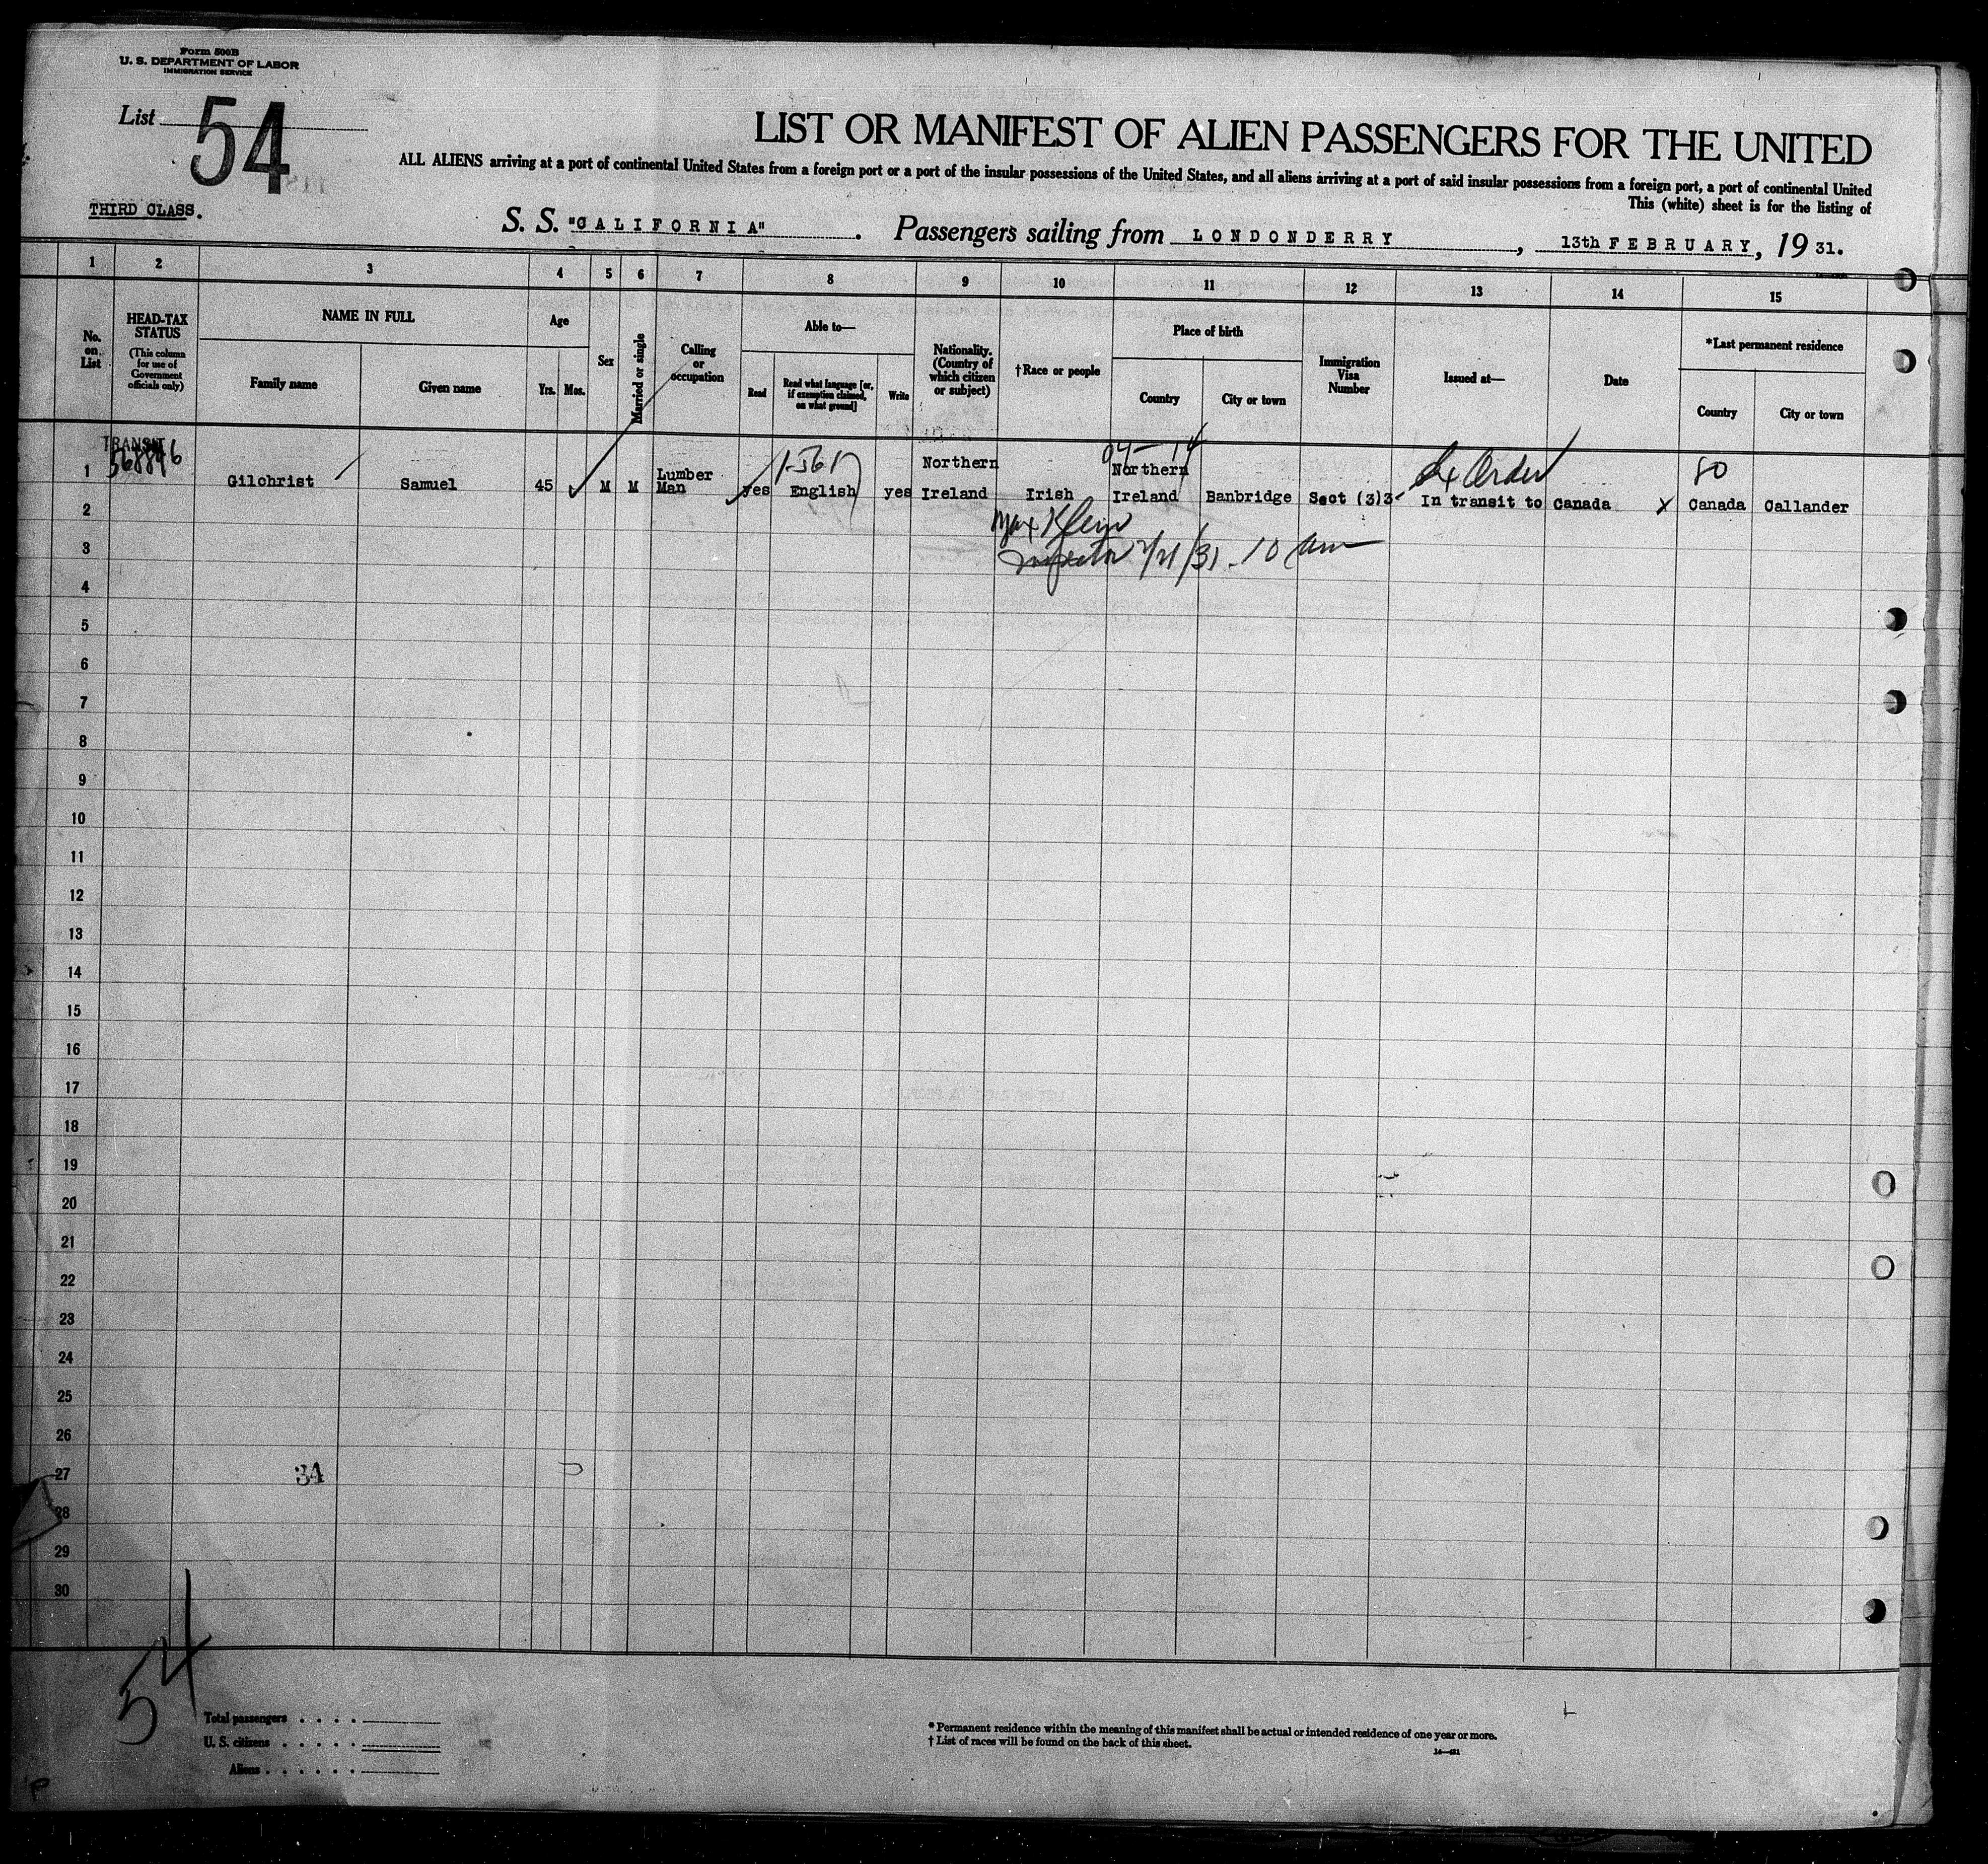 Form 500B
U. S. DEPARTMENT OF LABOR
IMMIGRATION SERVICE
List 54
LIST OR MANIFEST OF ALIEN PASSENGERS FOR THE UNITED
ALL ALIENS arriving at a port of continental United States from a foreign port or a port of the insular possessions of the United States, and all aliens arriving at a port of said insular possessions from a foreign port, a port of continental United
This (white) sheet is for the listing of
THIRD CLASS.
S. S. "CALIFORNIA". Passengers sailing from LONDONDERRY, 13th FEBRUARY, 1931.
1 2 3 4 5 6 7 8 9 10 11 12 13 14 15
No. on List
HEAD-TAX STATUS
(This column for use of Government officials only)
NAME IN FULL
Family name
Given name
Age
Yrs.
Mos.
Sex
Married or single
Calling or occupation
Able to—
Read
Read what language [or, if exemption claimed, on what ground]
Write
Nationality. (Country of which citizen or subject)
†Race or people
Place of birth
Country
City or town
Immigration Visa Number
Issued at—
Date
*Last permanent residence
Country
City or town
TRANSIT
Ex Order
80
1 Gilchrist Samuel 45 M M Lumber Man yes English yes Northern Ireland Irish Northern Ireland Banbridge Sect (3)3- In transit to Canada X Canada Callander
2
Max Klein
3
Inspector 2/21/31 - 10 am
4
5
6
7
8
9
10
11
12
13
14
15
16
17
18
19
20
21
22
23
24
25
26
27
34
28
29
30
54
Total passengers
U. S. citizens
Aliens
*Permanent residence within the meaning of this manifest shall be actual or intended residence of one year or more.
†List of races will be found on the back of this sheet.